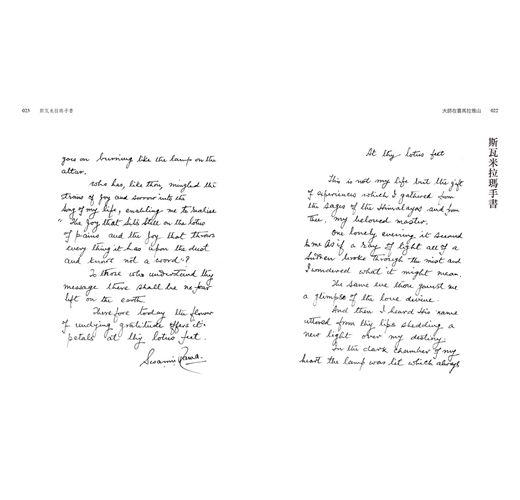 大師在喜馬拉雅山 022
斯瓦米拉瑪手書
At thy lotus feet
This is not my life but the gift
of experiences which I gathered from
the sages of the Himalayas and from
thee, my beloved master.
One lonely evening it seemed
to me as if a ray of light all of a
sudden broke through the mist and
I wondered what it might mean.
The same eve thou gavest me
a glimpse of the love divine.
And then I heard His name
uttered from thy lips shedding a
new light over my destiny.
In the dark chamber of my
heart the lamp was lit which always
023 斯瓦米拉瑪手書
goes on burning like the lamp on the
altar.
Who has, like thou, mingled the
strains of joy and sorrow into the
song of my life, enabling me to realise
"The joy that sits still on the lotus
of pains and the joy that throws
every thing it has upon the dust
and knows not a word"?
To those who understand thy
message there shall be no fear
left on the earth.
Therefore today the flower
of undying gratitude offers it's
petals at thy lotus feet.
Swami Rama.